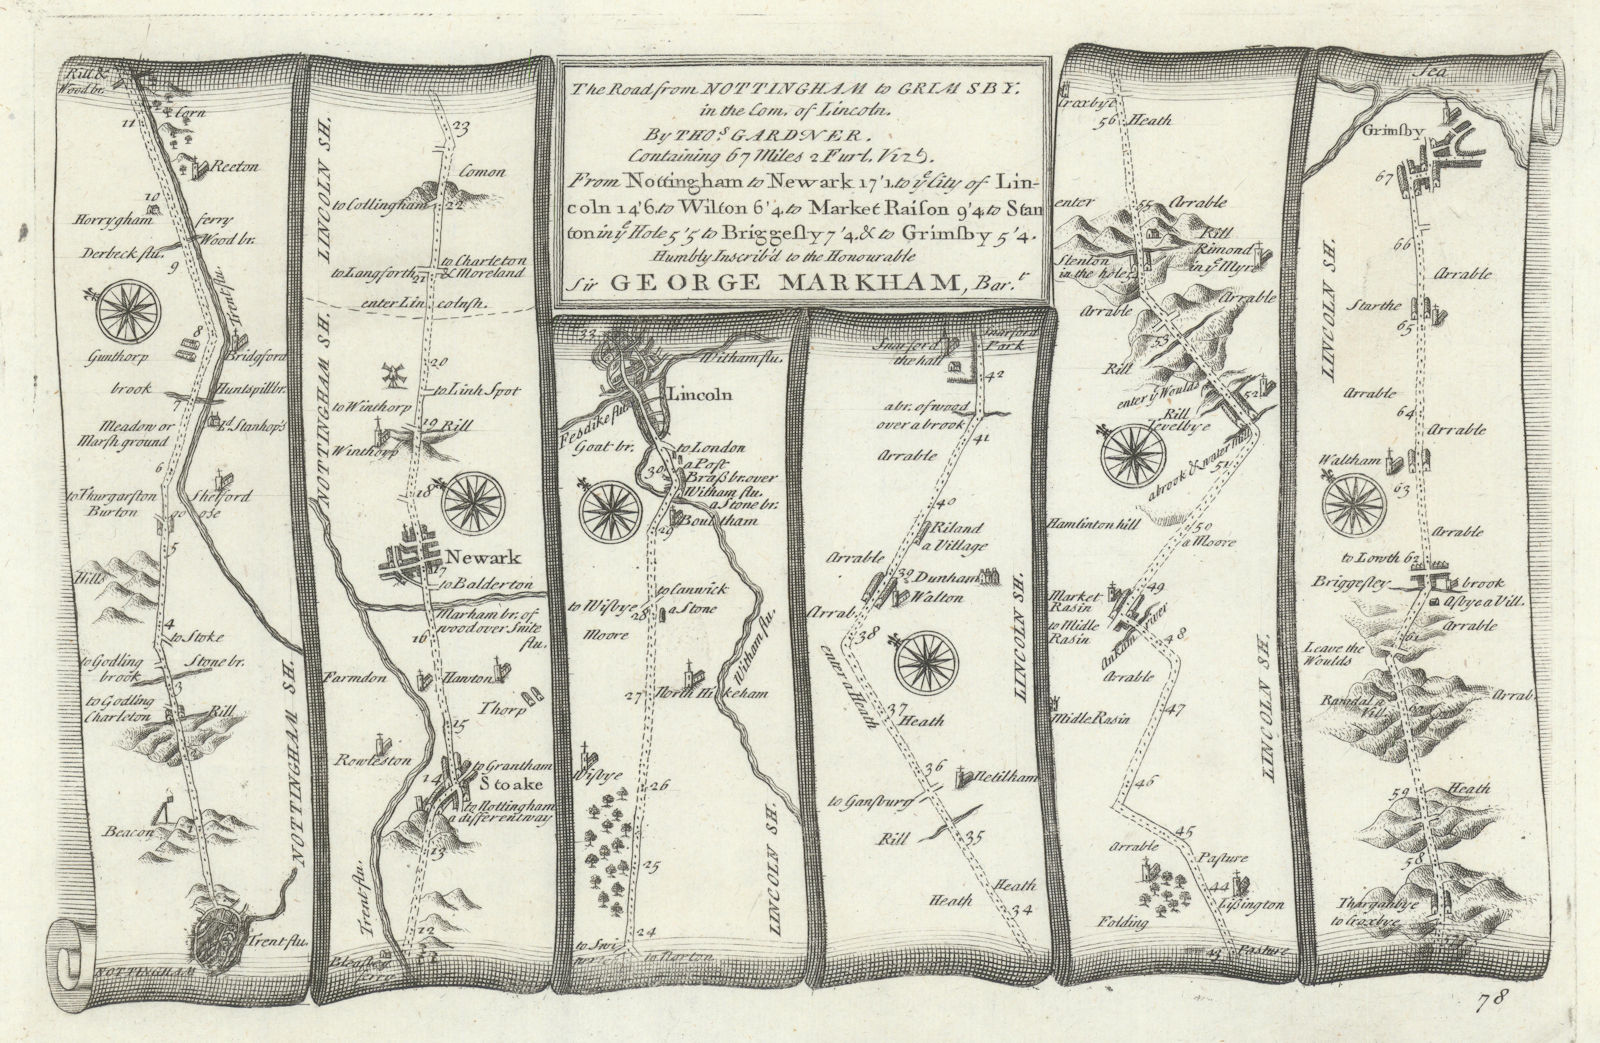 The Road from NOTTINGHAM to GRIMSBY.
in the Com. of Lincoln.
By THO.s GARDNER.
Containing 67 Miles 2 Furl. Viz.
From Nottingham to Newark 17'1. to ye City of Lin-
coln 14'6. to Wilton 6'4. to Market Raison 9'4. to Stan
ton in ye Hole 5'5 to Briggesly 7'4. & to Grimsby 5'4.
Humbly Inscrib'd to the Honourable
Sir GEORGE MARKHAM, Bar.t
Rill &
Wood br.
11
Corn
Reeton
10
Horrygham
ferry
Wood br.
Derbeck flu.
9
Trent flu.
8
Gunthorp
Bridgford
brook
Huntspill br.
7
Ld. Stanhop's
Meadow or
Marsh ground
6
to Thurgarston
Shelford
Burton
go ose
5
Hills
4
to Stoke
to Godling
brook
Stone br.
3
to Godling
Charleton
Rill
NOTTINGHAM SH.
Beacon
1
Trent flu.
NOTTINGHAM
23
LINCOLN SH.
Comon
to Collingham
22
to Charleton
& Moreland
to Langforth
21
enter Lincolnsh.
NOTTINGHAM SH.
20
to Linh Spot
to Winthorp
19
Rill
Winthorp
18
Newark
17
to Balderton
Marham br. of
wood over Snite
flu.
16
Farmdon
Hawton
Thorp
15
Rowleston
to Grantham
14
Stoake
to Nottingham
a different way
13
Trent flu.
12
ferry
33
Witham flu.
Lincoln
Fesdike flu.
Goat br.
to London
a Post
30
Braß br. over
Witham flu.
a Stone br.
Boultham
29
to Canwick
to Wisbye
a Stone
28
Moore
Witham flu.
27
North Hickeham
Wisbye
26
25
LINCOLN SH.
24
to Swi
to Norton
Snarford
Park
Snarford
the hall
42
a br. of wood
over a brook
41
Arrable
40
Riland
a Village
Arrable
39
Dunham
Walton
Arrab.
38
LINCOLN SH.
enter a Heath
37
Heath
36
Netilham
to Gansburg
Rill
35
Heath
Heath
34
Croxbye
56
Heath
enter
55
Arrable
Rill
Rimond
in ye Myre
Stenton
in the hole
Arrable
Arrable
53
Rill
enter ye Woulds
52
Rill
Tevelbye
a brook & water mill
51
Hamlinton hill
50
a Moore
49
Market
Rasin
to Midle
Rasin
Ankam river
48
Arrable
47
Midle Rasin
LINCOLN SH.
46
45
Arrable
Pasture
44
Lißington
Folding
43
Pasture
Sea
Grimsby
67
LINCOLN SH.
66
Arrable
Starthe
65
Arrable
64
Arrable
Waltham
63
Arrable
to Lowth
62
Briggesley
brook
Asbye a Vill.
Arrable
61
Leave the
Woulds
Ravndal a
Vill.
Arrab.
59
Heath
58
Thorganbye
to Croxbye
78